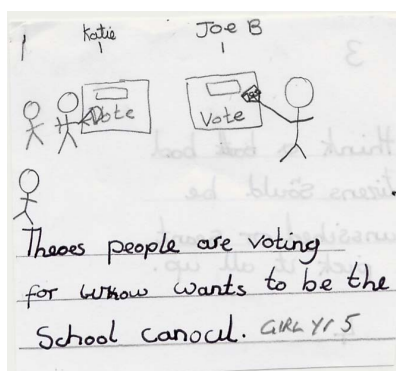 1
Katie Joe B
Vote Vote
Theoes people are voting
for whow wants to be the
School canocul. GIRL Yr 5